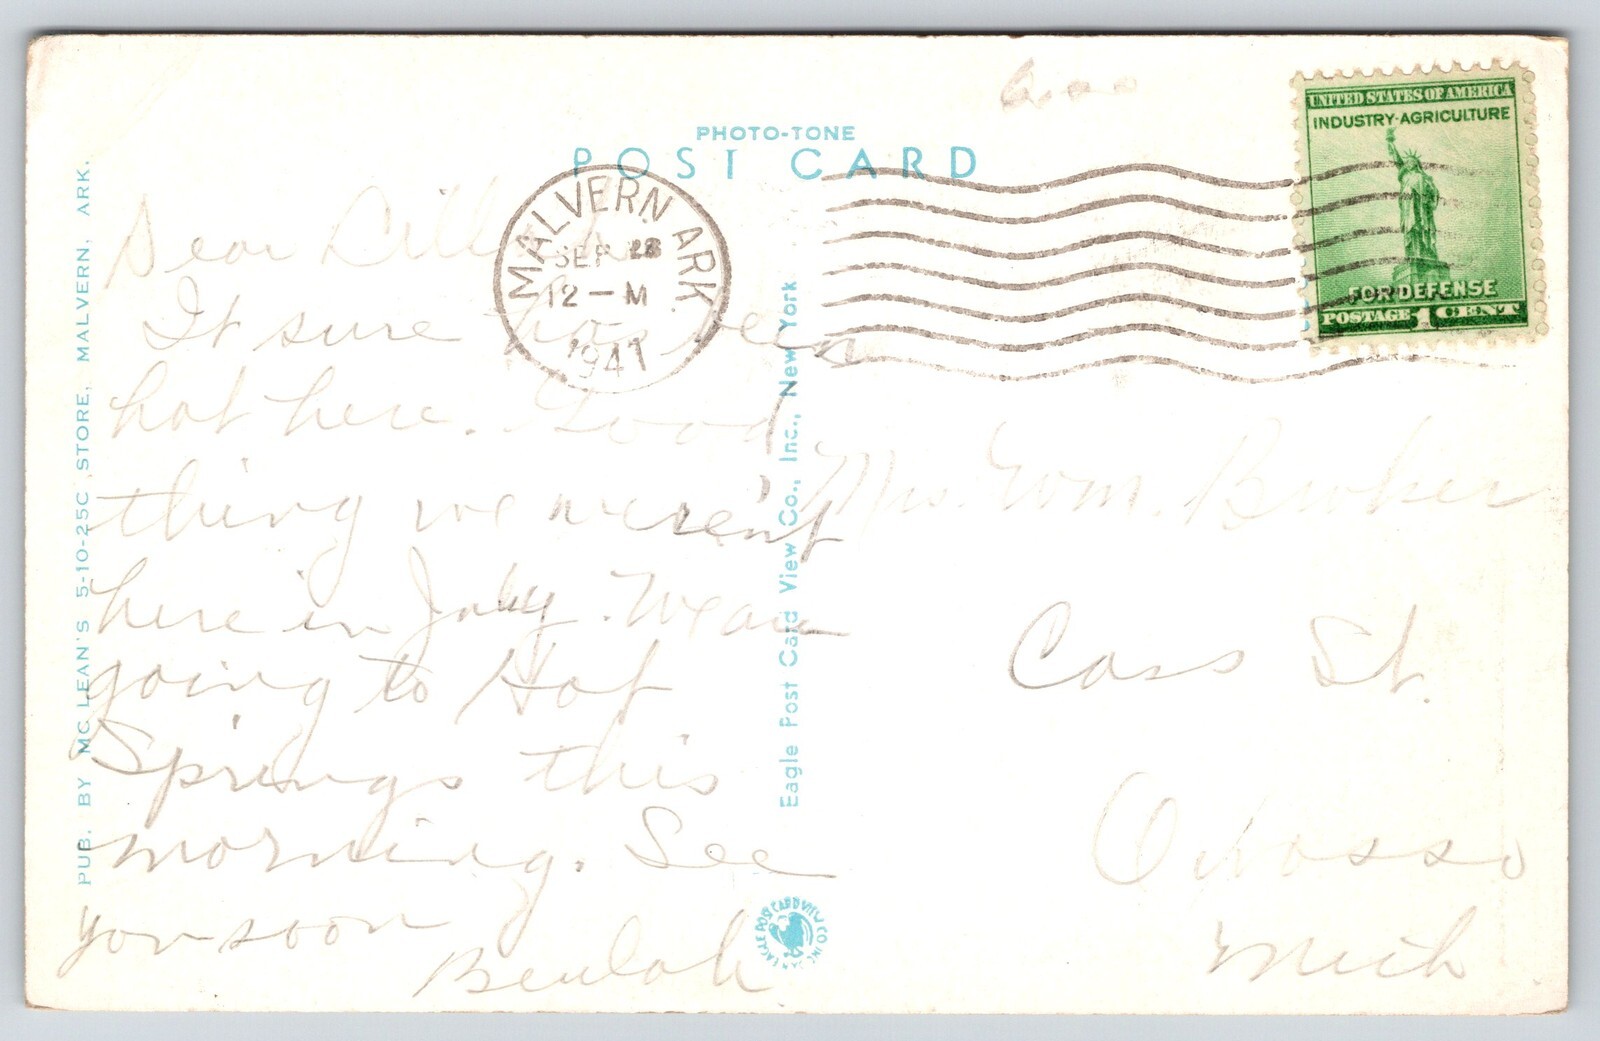 PHOTO-TONE
POST CARD
UNITED STATES OF AMERICA
INDUSTRY-AGRICULTURE
FOR DEFENSE
POSTAGE 1 CENT
MALVERN ARK.
SEP 28
12-M
1941
Dear
It sure has been
hot here. Good
thing we weren't
here in July. We are
going to Hot
Springs this
morning. See
you soon
Beulah
Mrs. Wm.
Cass St.
Owosso
Mich
PUB. BY MC LEAN'S 5-10-25C STORE, MALVERN, ARK.
Eagle Post Card View Co., Inc., New York
EAGLE POST CARD VIEW CO. INC.